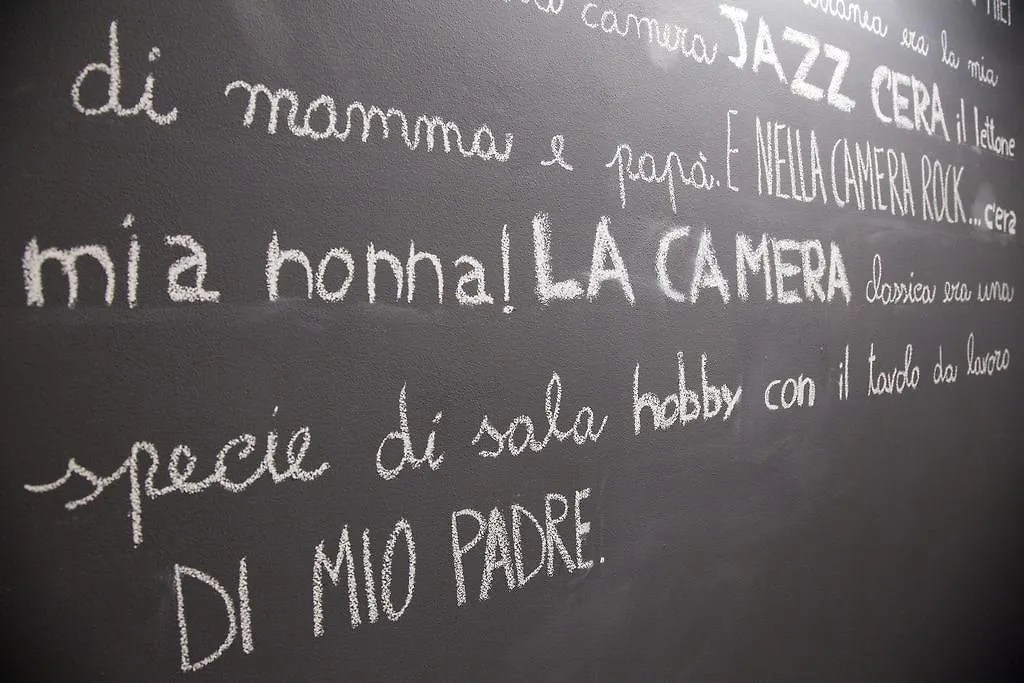 era la mia
camera JAZZ C'ERA il lettone
di mamma e papà. E NELLA CAMERA ROCK... c'era
mia nonna! LA CAMERA classica era una
specie di sala hobby con il tavolo da lavoro
DI MIO PADRE.